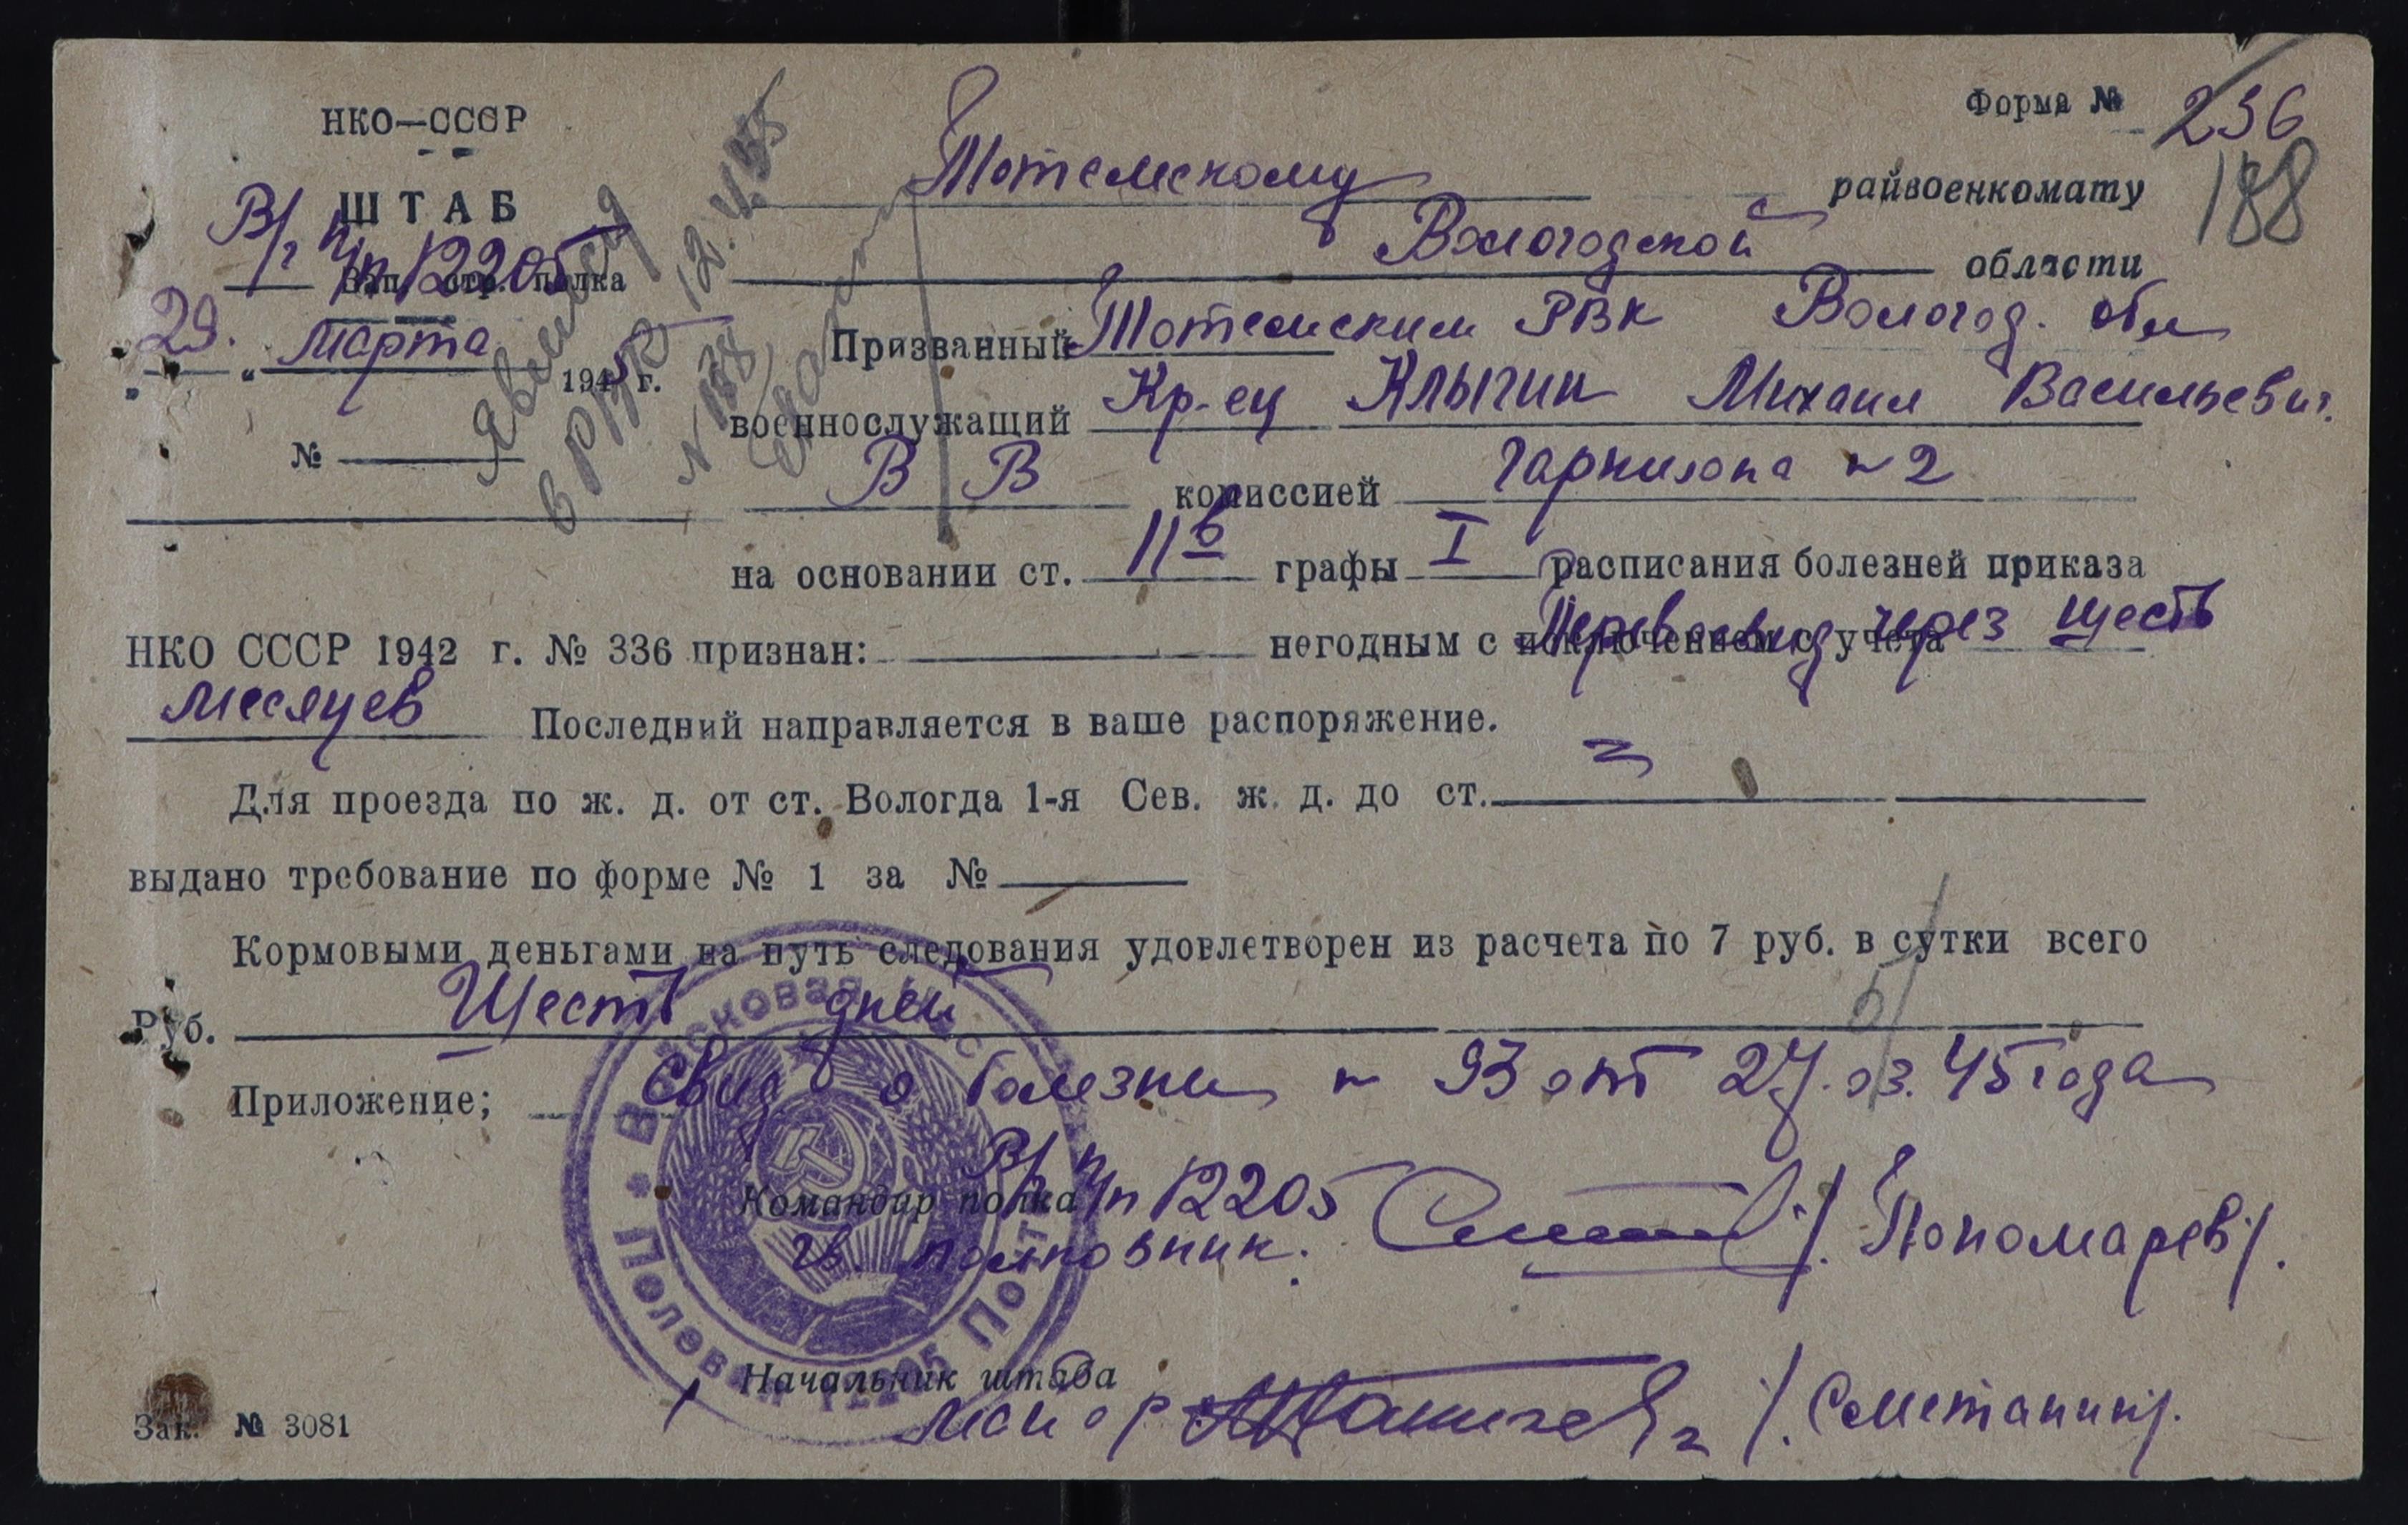 НКО—СССР
Форма №
236
188
ШТАБ
В/ч п/п 12205
Зап. стр. полка
29. марта 1945 г.
№
Явился
в РВК 12.4.45
N 188
Тотемскому райвоенкомату
Вологодской области
Призванный Тотемским РВК Вологод. обл
военнослужащий Кр-ец Клыгин Михаил Васильевич.
В В комиссией гарнизона N 2
на основании ст. 11б графы I расписания болезней приказа
НКО СССР 1942 г. № 336 признан: негодным с исключением с учета Переосвид через шесть
месяцев Последний направляется в ваше распоряжение.
Для проезда по ж. д. от ст. Вологда 1-я Сев. ж. д. до ст.
выдано требование по форме № 1 за №
Кормовыми деньгами на путь следования удовлетворен из расчета по 7 руб. в сутки всего
Руб. Шесть дней
Приложение; Свид о болезни N 93 от 27.03.45 года
В/ч п/п 12205
Командир полка
гв. полковник. /Пономарев/.
Начальник штаба
майор /Сметанин/.
Войсковая часть Полевая Почта 12205
Зак. № 3081